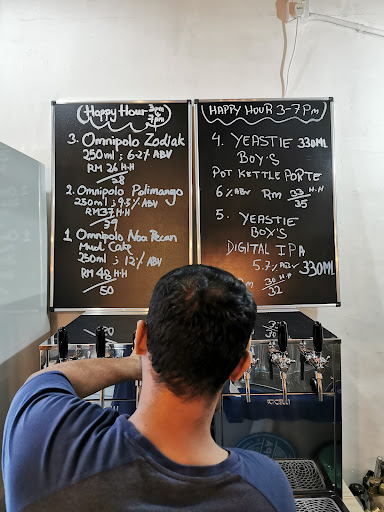 Happy Hour 3pm
7pm
3. Omnipolo Zodiak
250ml ; 6.2% ABV
RM 26 H·H
28
2. Omnipolo Palimango
250ml ; 9.5% ABV
RM 37 H·H
39
1 Omnipolo Noa Pecan
Mud Cake
250ml ; 12% ABV
RM 48 H·H
50
HAPPY HOUR 3-7 Pm
4. YEASTIE 330ML
BOY'S
POT KETTLE PORTE
6% ABV RM 33 H·H
35
5. YEASTIE
BOY'S
DIGITAL IPA
5.7% ABV 330ML
30 H·H
32